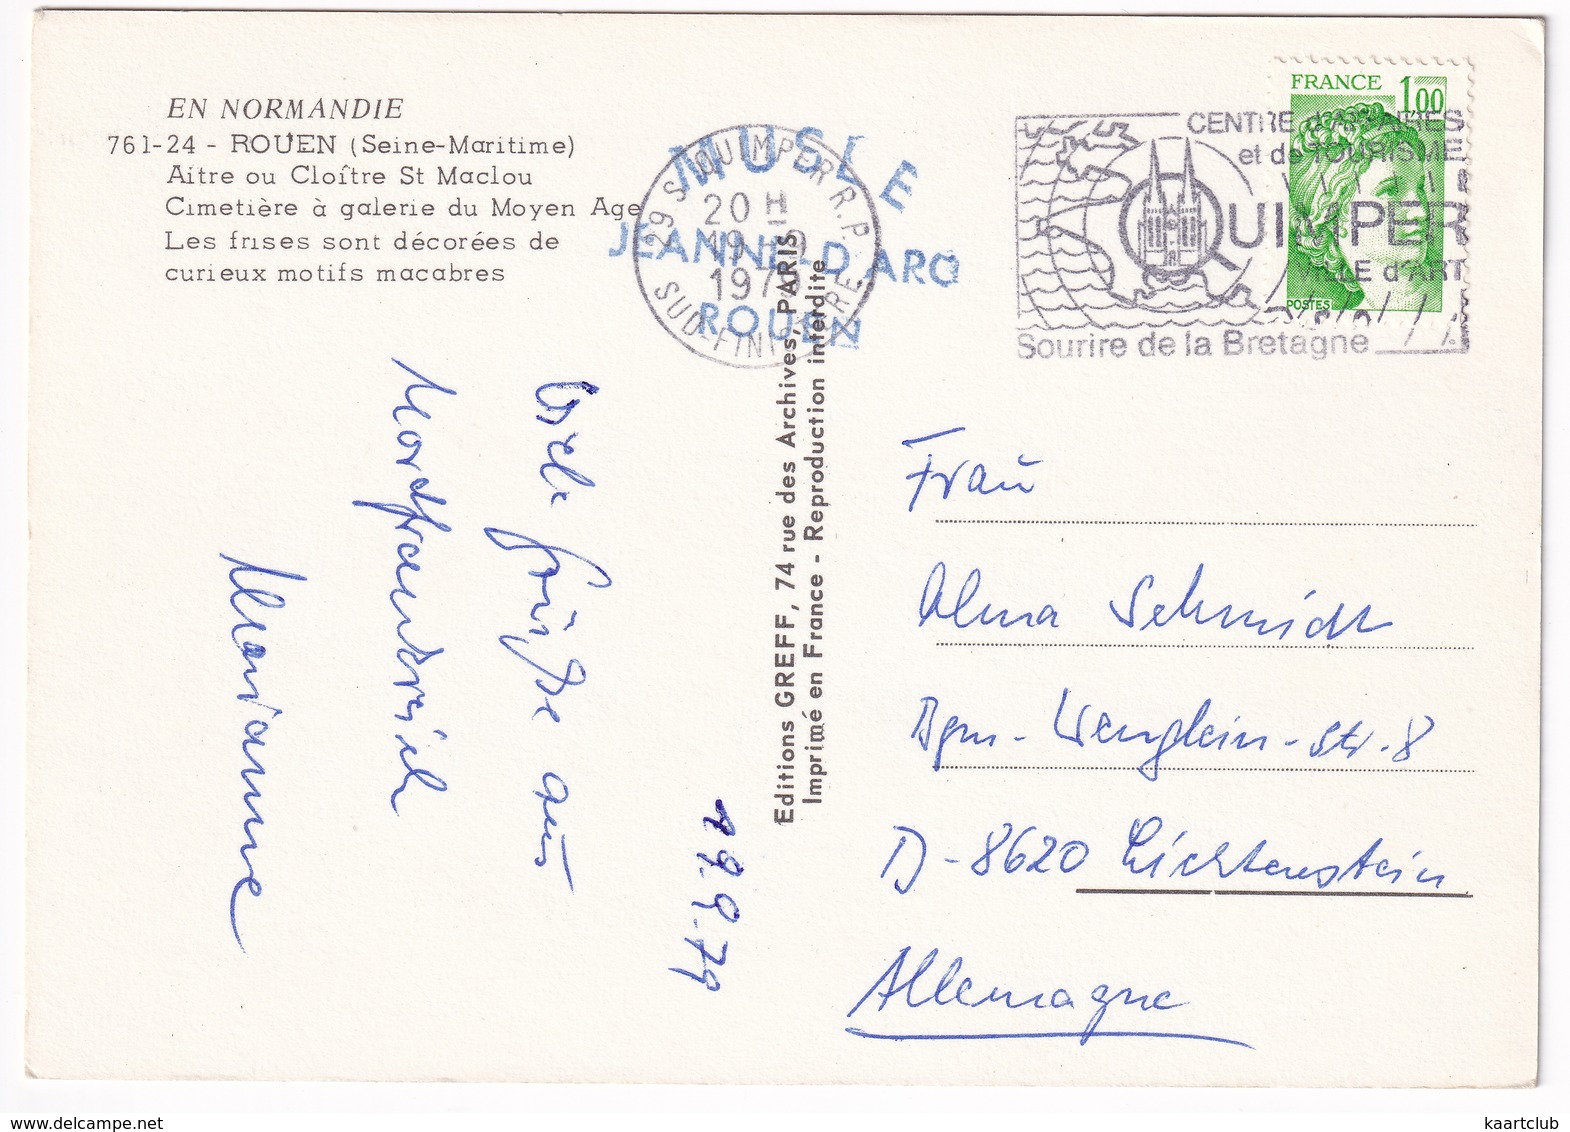 EN NORMANDIE
761-24 - ROUEN (Seine-Maritime)
Aitre ou Cloître St Maclou
Cimetière à galerie du Moyen Age
Les frises sont décorées de
curieux motifs macabres
MUSEE
JEANNE-D'ARC
ROUEN
29 S QUIMPER R.P.
20 H
19 -9
1979
SUD-FINISTERE
CENTRE d'AFFAIRES
et de TOURISME
QUIMPER
VILLE d'ART
Sourire de la Bretagne
FRANCE 1,00
POSTES
19.9.79
Viele Grüße aus
Nordfrankreich
Marianne
Editions GREFF, 74 rue des Archives, PARIS
Imprimé en France - Reproduction interdite
Frau
Alma Schmidt
Bgm-Wenglein-Str-8
D-8620 Lichtenstein
Allemagne
kaartclub